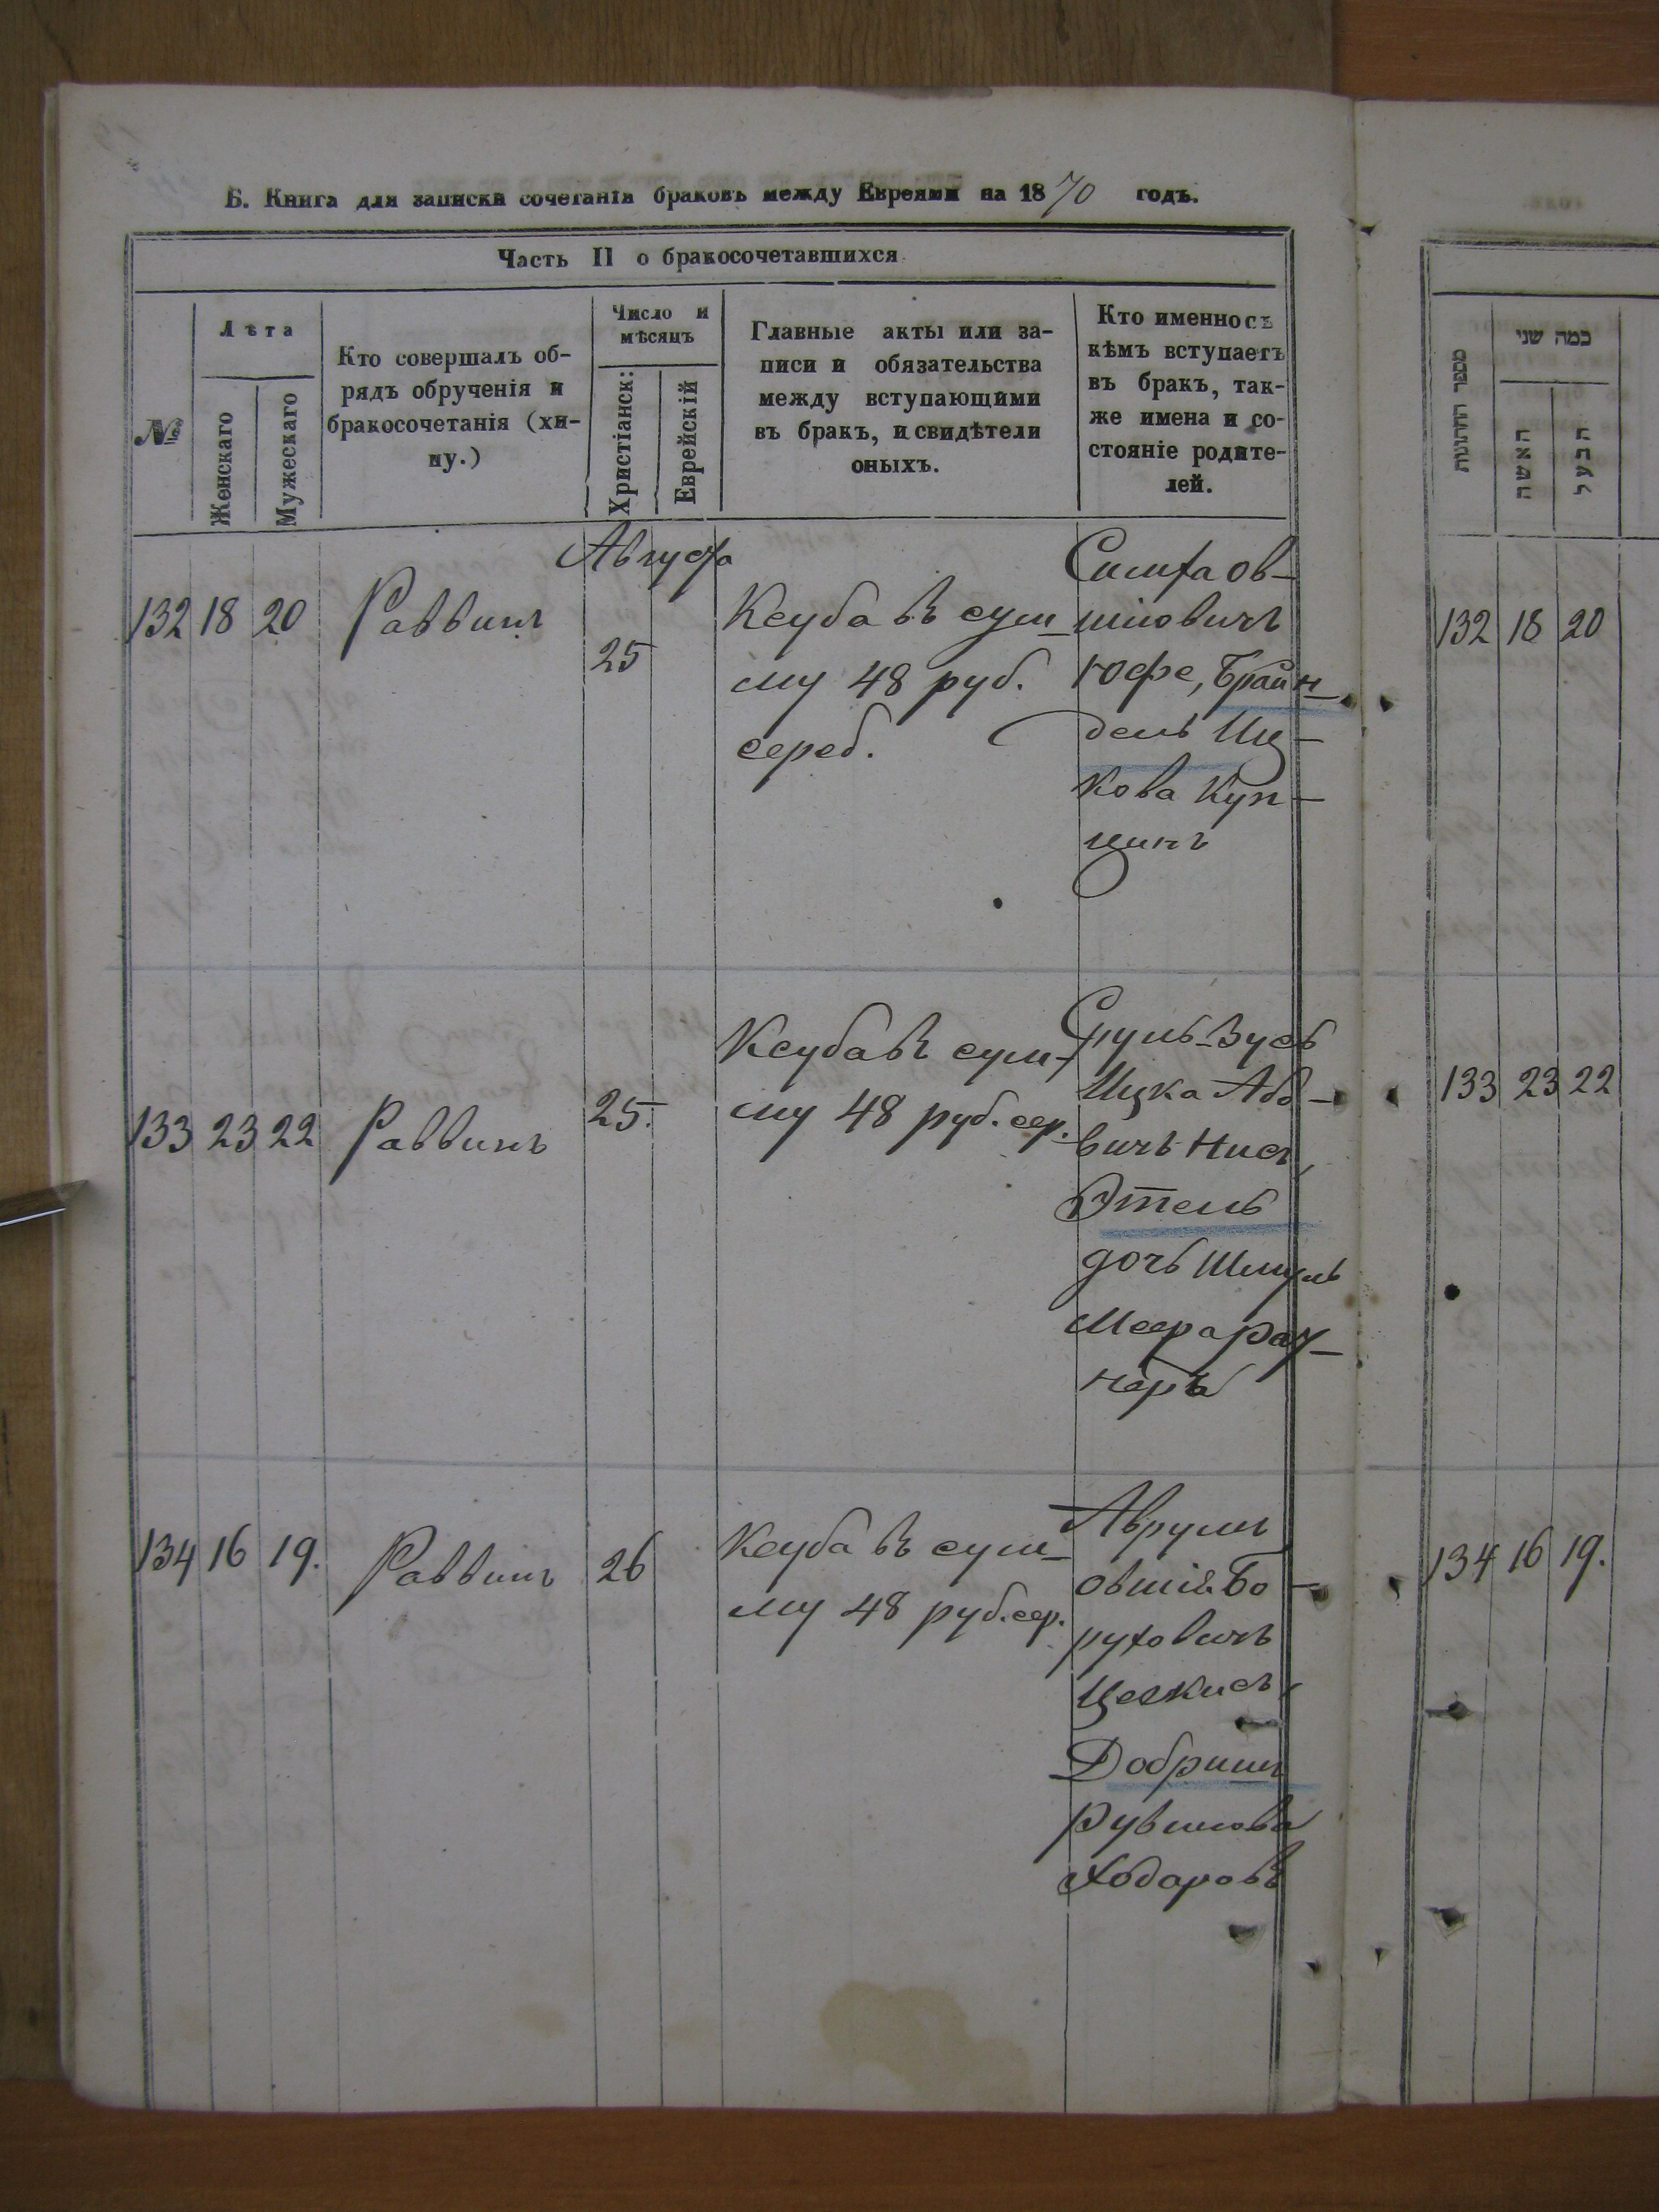 Б. Книга для записки сочетанія браковъ между Евреями на 1870 годъ.
Часть II о бракосочетавшихся
№
Лѣта
Женскаго
Мужескаго
Кто совершалъ об-
рядъ обрученія и
бракосочетанія (хи-
пу.)
Число и
мѣсяцъ
Христіанск:
Еврейскій
Главные акты или за-
писи и обязательства
между вступающими
въ бракъ, и свидѣтели
оныхъ.
Кто именно съ
кѣмъ вступаетъ
въ бракъ, так-
же имена и со-
стояніе родите-
лей.
Августа
132 18 20 Раввинъ
25
Ксуба въ сум-
му 48 руб.
сереб.
Симха Ов-
шіовичъ
Юфе, Брайн-
дель Иц-
кова Куп-
цинъ
133 23 22 Раввинъ
25.
Ксуба въ сум-
му 48 руб. сер.
Сруль-Зусь
Ицка Аб-
вичъ Нисъ,
Этель
дочь Шмуль
Меера
неръ
134 16 19. Раввинъ
26
Ксуба въ сум-
му 48 руб. сер.
Аврумъ
Овшій Бо-
руховичъ
Добришъ
Рувинова
Ходоровъ
מספר החתונות
כמה שני
האשה
הבעל
132 18 20
133 23 22
134 16 19.